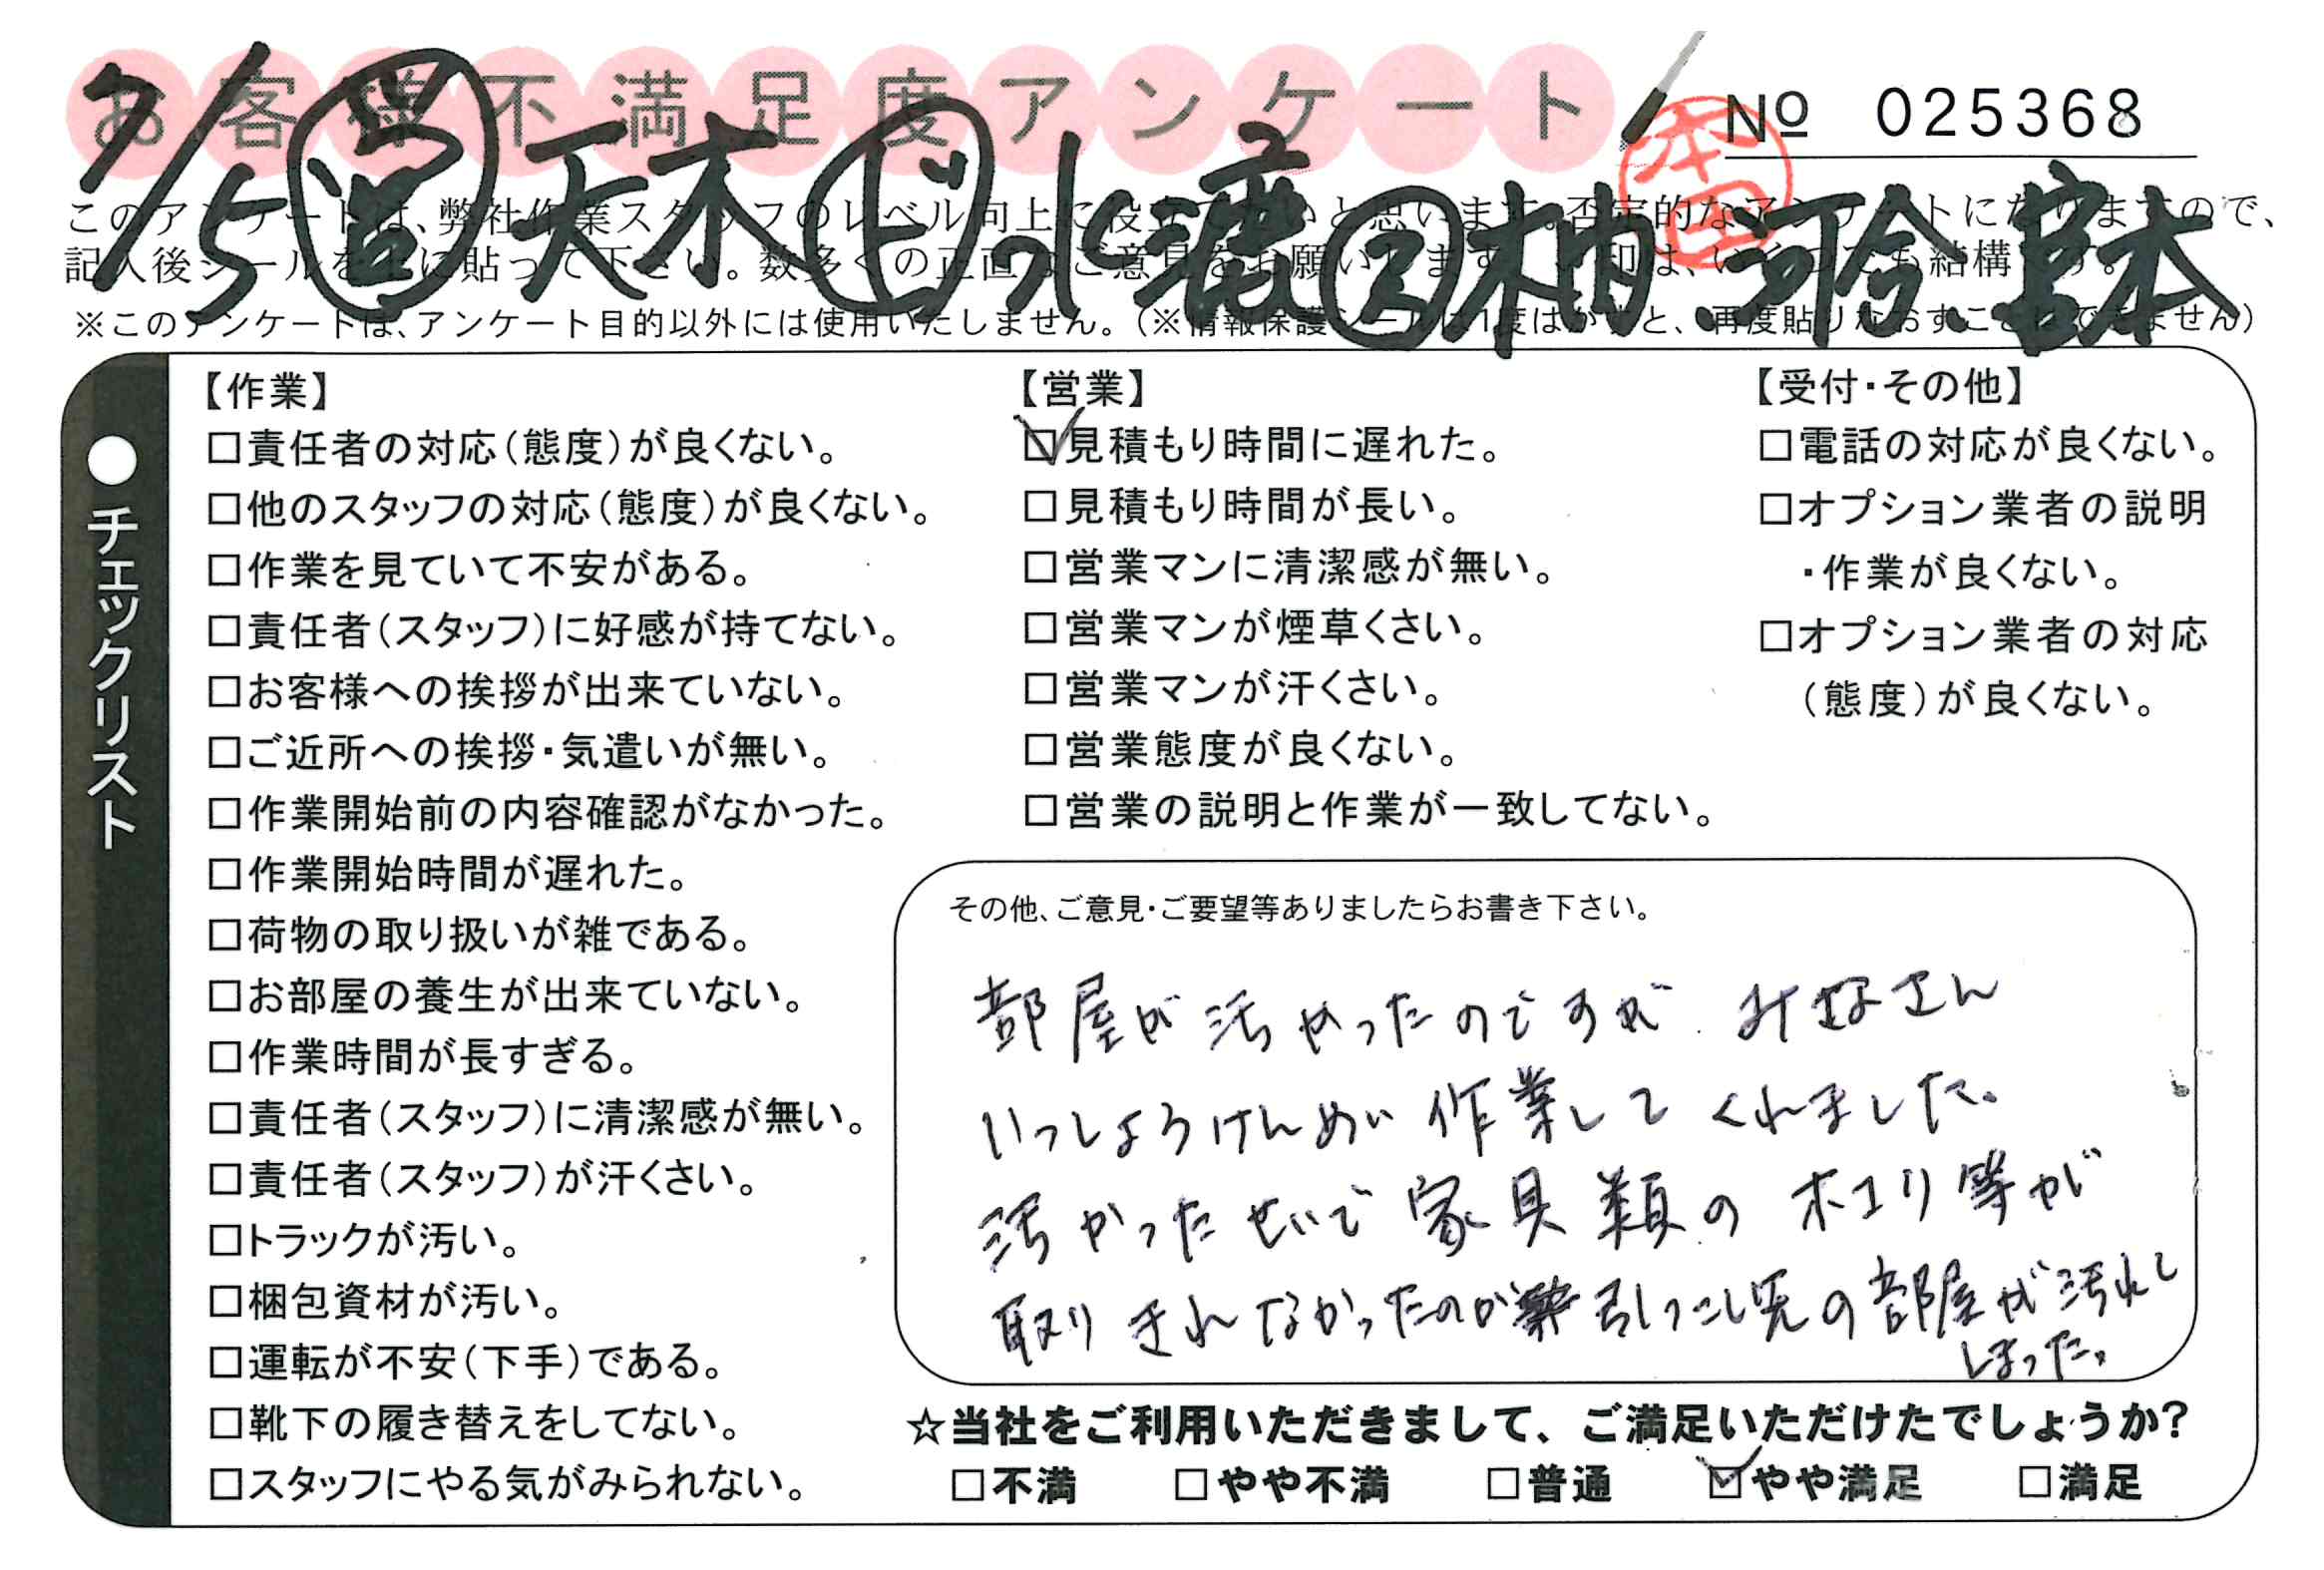 お客様不満足度アンケート
No 025368
7/5 営 天木 ビ 水 ス 柚 河合 宮本
本田
このアンケートは、弊社作業スタッフのレベル向上に役立てたいと思います。否定的なアンケートになりますので、
記入後シールを上に貼って下さい。数多くの正直なご意見をお願いします。
※このアンケートは、アンケート目的以外には使用いたしません。(※情報保護シールは1度はがすと、再度貼りなおすことはできません)
●チェックリスト
【作業】
□責任者の対応(態度)が良くない。
□他のスタッフの対応(態度)が良くない。
□作業を見ていて不安がある。
□責任者(スタッフ)に好感が持てない。
□お客様への挨拶が出来ていない。
□ご近所への挨拶・気遣いが無い。
□作業開始前の内容確認がなかった。
□作業開始時間が遅れた。
□荷物の取り扱いが雑である。
□お部屋の養生が出来ていない。
□作業時間が長すぎる。
□責任者(スタッフ)に清潔感が無い。
□責任者(スタッフ)が汗くさい。
□トラックが汚い。
□梱包資材が汚い。
□運転が不安(下手)である。
□靴下の履き替えをしてない。
□スタッフにやる気がみられない。
【営業】
☑見積もり時間に遅れた。
□見積もり時間が長い。
□営業マンに清潔感が無い。
□営業マンが煙草くさい。
□営業マンが汗くさい。
□営業態度が良くない。
□営業の説明と作業が一致してない。
【受付・その他】
□電話の対応が良くない。
□オプション業者の説明
・作業が良くない。
□オプション業者の対応
(態度)が良くない。
その他、ご意見・ご要望等ありましたらお書き下さい。
部屋が汚かったのですが みなさん
いっしょうけんめい作業してくれました。
汚かったせいで家具類のホコリ等が
取りきれなかったのか 引っこし先の部屋が汚れて
しまった。
☆当社をご利用いただきまして、ご満足いただけたでしょうか?
□不満 □やや不満 □普通 ☑やや満足 □満足